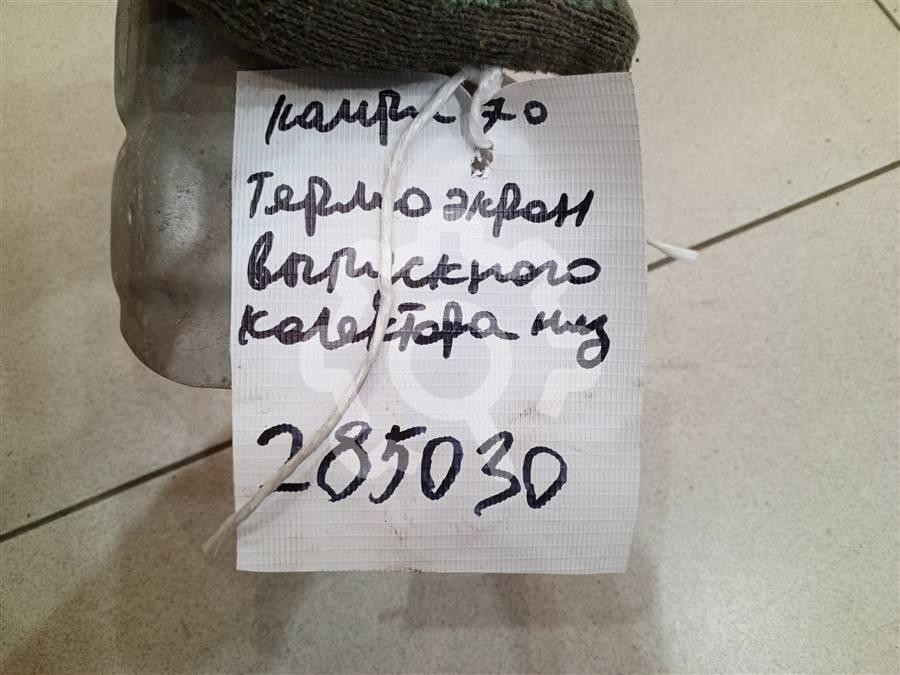 камри 70
Термо экран
выпускного
колектора низ
285030